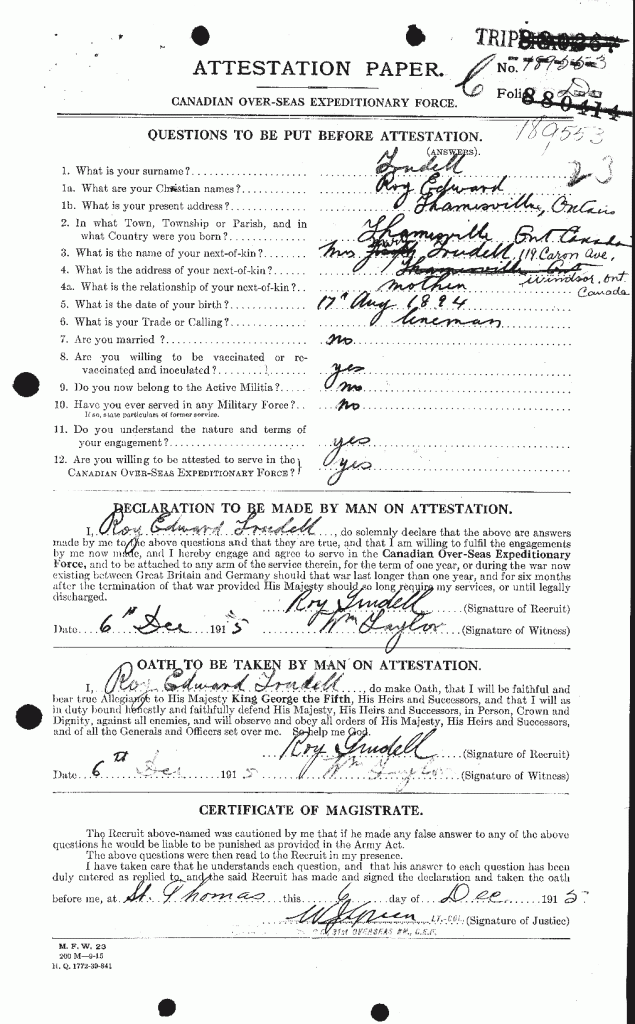 TRIP
ATTESTATION PAPER.
No. 189553
Folio.
880414
CANADIAN OVER-SEAS EXPEDITIONARY FORCE.
189553
23
QUESTIONS TO BE PUT BEFORE ATTESTATION.
(ANSWERS).
1. What is your surname? Trudell
1a. What are your Christian names? Roy Edward
1b. What is your present address? Thamesville, Ontario
2. In what Town, Township or Parish, and in
what Country were you born? Thamesville Ont Canada
3. What is the name of your next-of-kin? Mrs Mary Trudell 119 Caron Ave,
4. What is the address of your next-of-kin? Thamesville Ont Windsor, Ont
4a. What is the relationship of your next-of-kin? mother Canada
5. What is the date of your birth? 17th Aug 1894
6. What is your Trade or Calling? lineman
7. Are you married? no
8. Are you willing to be vaccinated or re-
vaccinated and inoculated? yes
9. Do you now belong to the Active Militia? no
10. Have you ever served in any Military Force? no
If so, state particulars of former service.
11. Do you understand the nature and terms of
your engagement? yes
12. Are you willing to be attested to serve in the
CANADIAN OVER-SEAS EXPEDITIONARY FORCE? yes
DECLARATION TO BE MADE BY MAN ON ATTESTATION.
I, Roy Edward Trudell, do solemnly declare that the above are answers
made by me to the above questions and that they are true, and that I am willing to fulfil the engagements
by me now made, and I hereby engage and agree to serve in the Canadian Over-Seas Expeditionary
Force, and to be attached to any arm of the service therein, for the term of one year, or during the war now
existing between Great Britain and Germany should that war last longer than one year, and for six months
after the termination of that war provided His Majesty should so long require my services, or until legally
discharged.
Roy Trudell (Signature of Recruit)
Date 6th Dec 1915 Wm Taylor (Signature of Witness)
OATH TO BE TAKEN BY MAN ON ATTESTATION.
I, Roy Edward Trudell, do make Oath, that I will be faithful and
bear true Allegiance to His Majesty King George the Fifth, His Heirs and Successors, and that I will as
in duty bound honestly and faithfully defend His Majesty, His Heirs and Successors, in Person, Crown and
Dignity, against all enemies, and will observe and obey all orders of His Majesty, His Heirs and Successors,
and of all the Generals and Officers set over me. So help me God.
Roy Trudell (Signature of Recruit)
Date 6th Dec 1915 Wm Taylor (Signature of Witness)
CERTIFICATE OF MAGISTRATE.
The Recruit above-named was cautioned by me that if he made any false answer to any of the above
questions he would be liable to be punished as provided in the Army Act.
The above questions were then read to the Recruit in my presence.
I have taken care that he understands each question, and that his answer to each question has been
duly entered as replied to, and the said Recruit has made and signed the declaration and taken the oath
before me, at St. Thomas this 6 day of Dec 1915
LT.-COL. (Signature of Justice)
91ST OVERSEAS BN., C.E.F.
M. F. W. 23
200 M-9-15
H. Q. 1772-39-841